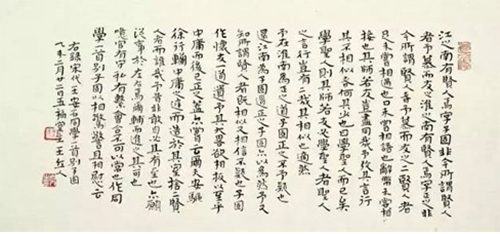 江之南有賢人焉字子固非今所謂賢人
者予慕而友之淮之南有賢人焉字正之非
今所謂賢人者予慕而友之二賢人者
足未嘗相過也口未嘗相語也辭幣未嘗相
接也其師若友豈盡同哉予攷其言行
其不相似者何其少也曰學聖人而已矣
學聖人則其師若友必學聖人者聖人
之言行豈有二哉其相似也適然
予在淮南為正之道子固正之不予疑也
還江南為子固道正之子固亦以為然予又
知所謂賢人者既相似又相信不疑也子固
作懷友遺予其大畧欲相扳以至乎
中庸而後已正之蓋亦嘗云爾夫安驅
徐行轥中庸之庭而造於其室捨二賢
人者而誰哉予昔非敢自必其有至也亦願
從事於左右焉爾輔而進之其可也
噫官有守私有繫會合不可以常也作同
學一首別子固以相警且相慰云
右錄宋代王安石同學一首別子固
未二月廿二日五福堂王